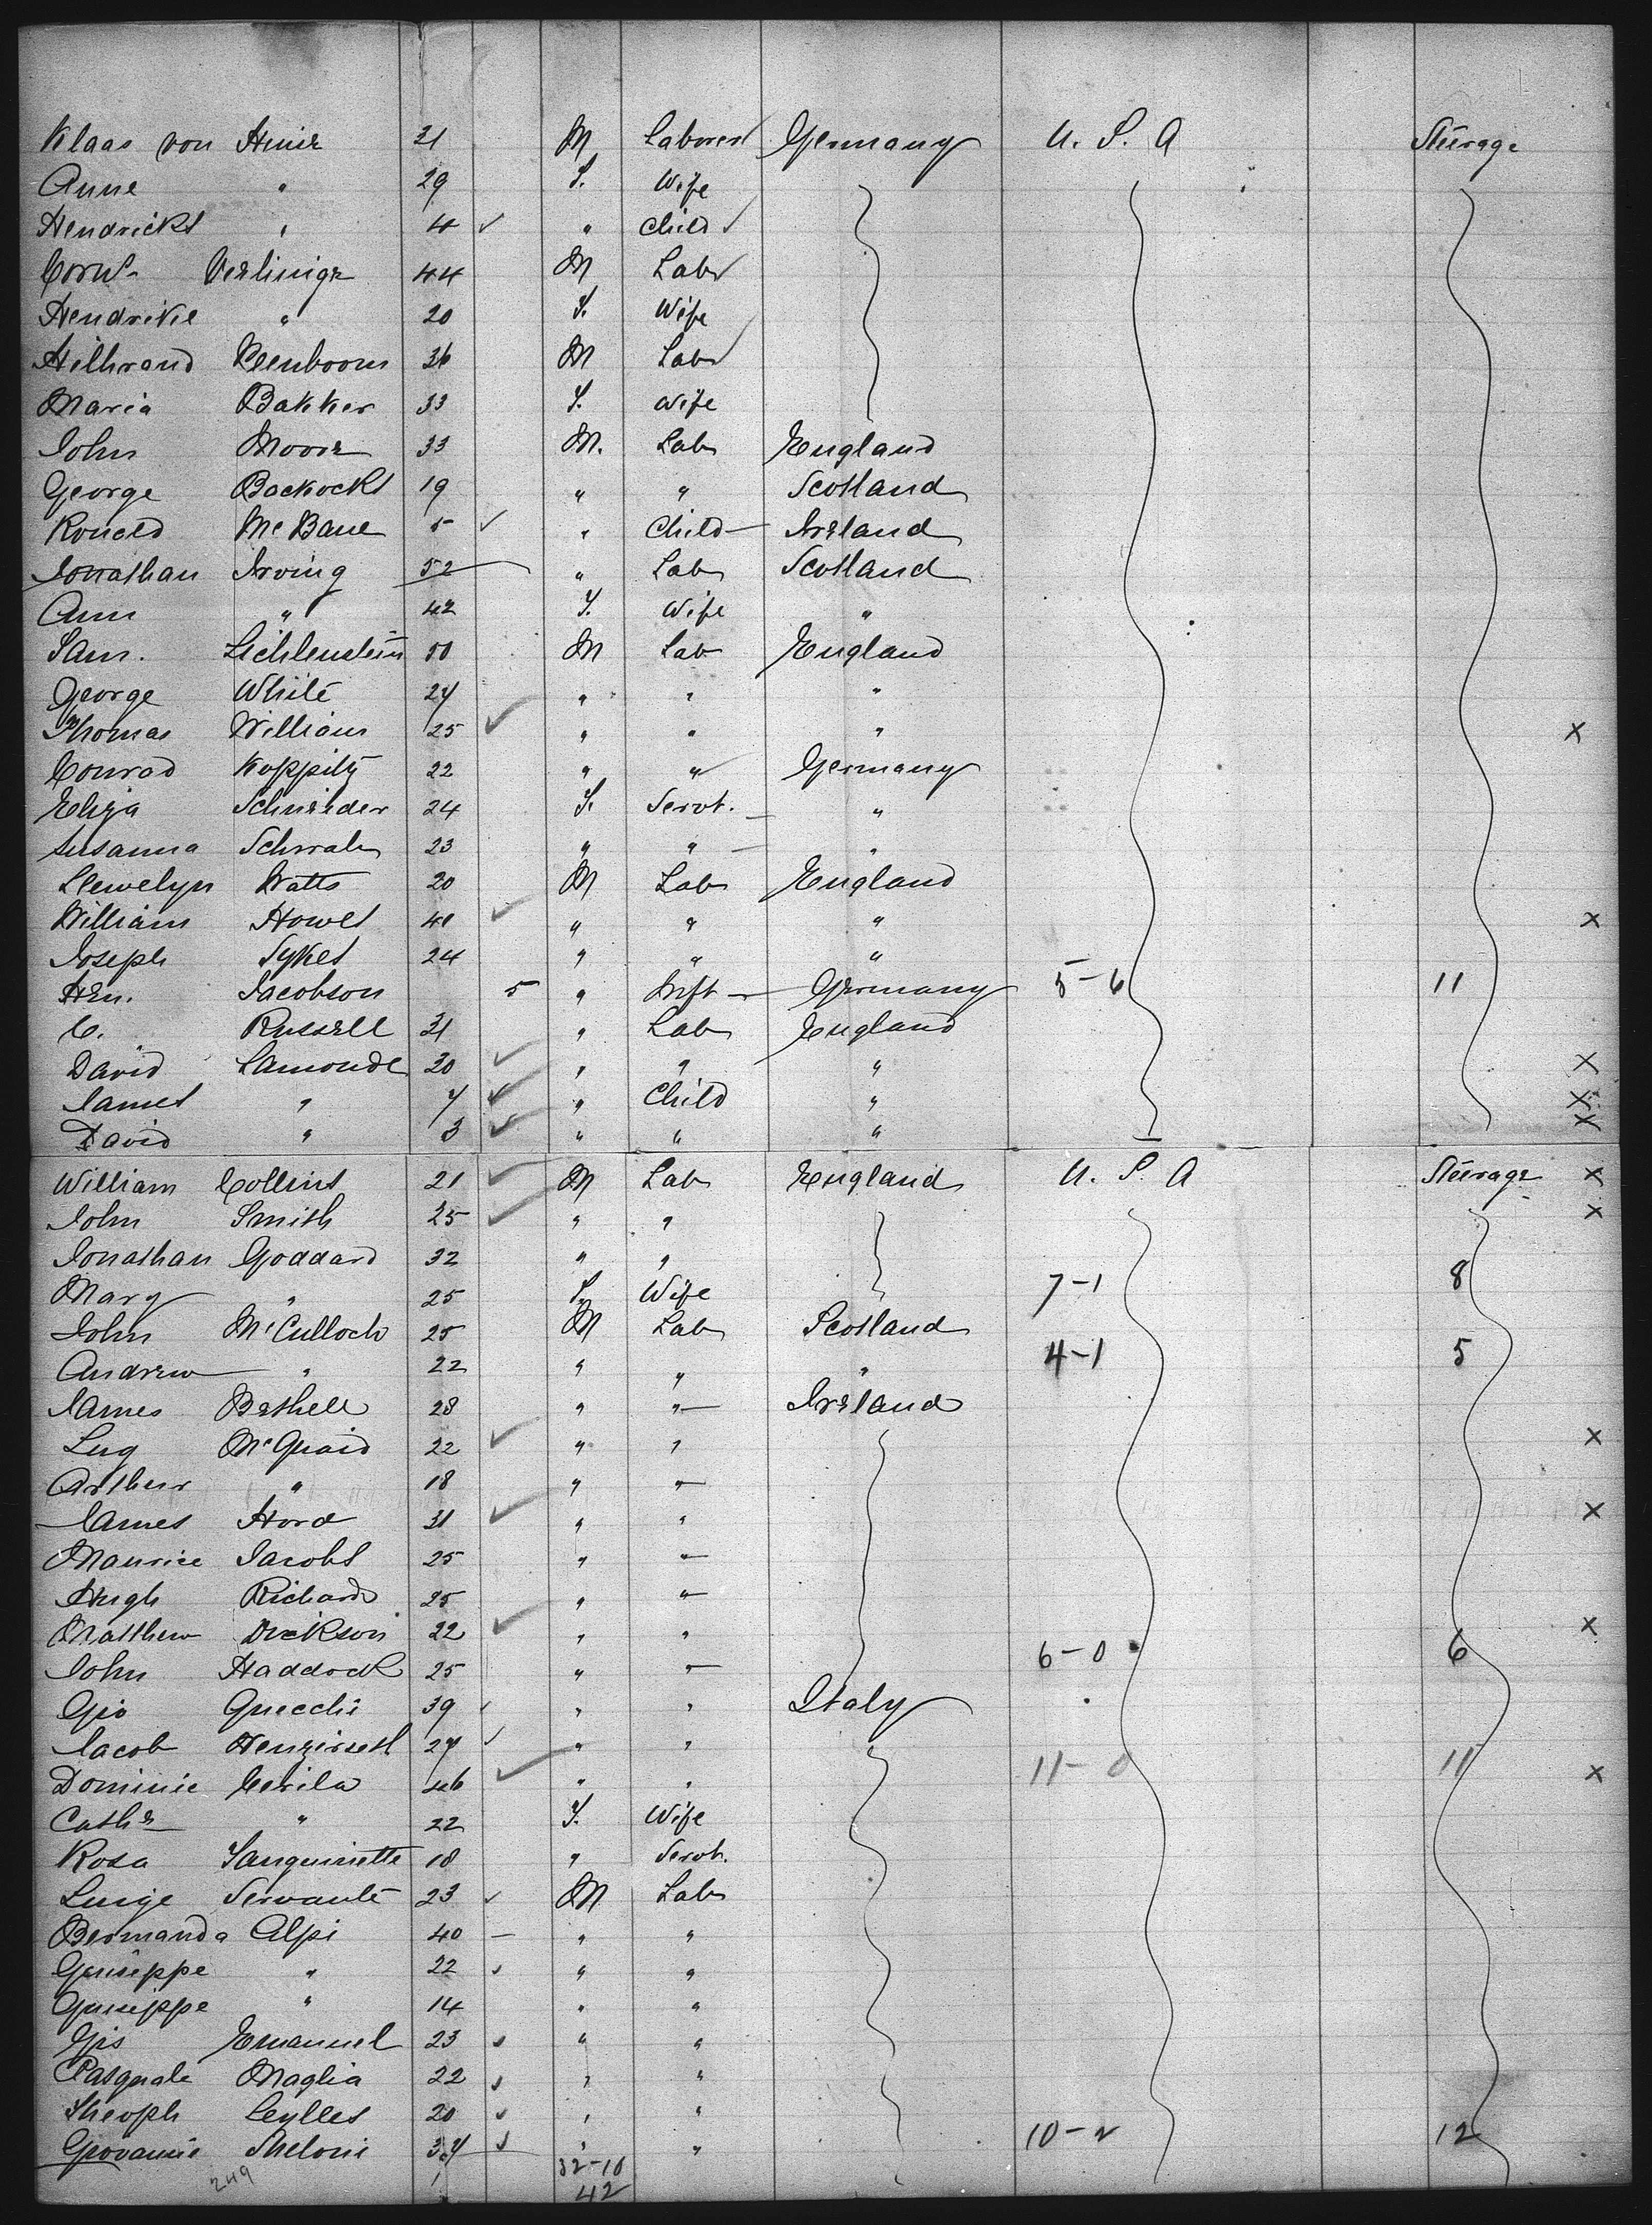 Klaas von 31 M Laborer Germany U. S. A Steerage
Anne " 29 F. Wife
Hendricks " 4 ✓ " Child ✓
Corns. 44 M Lab ✓
Hendrike " 20 F. Wife
36 M Lab ✓
Maria Bakker 33 F. Wife
John Moore 33 M. Lab England
George 19 " " Scotland
Roneld McBane 5 ✓ " Child — Ireland
Jonathan Irving 52 " Lab Scotland
Ann " 42 F. Wife "
Sam. Lichtenstein 50 M Lab England
George White 24 " " "
Thomas William 25 ✓ " " " x
Conrad Koppitz 22 " " Germany
Eliza Schneider 24 F. Servt. — "
Susanna Schwab 23 " " — "
Llewelyn Watts 20 M Lab England
William Howes ✓ " " " x
Joseph Sykes 24 " " "
Hen. Jacobson 5 " Inft — Germany 5-6 11
C. Russell 31 " Lab England
David Lamonde 30 ✓ " " " x
James " 7 ✓ " Child " x
David " 3 ✓ " " " x
William Collins 21 ✓ M Lab England U. S. A Steerage x
John Smith 25 ✓ " " x
Jonathan Goddard 32 " "
Mary " 25 F. Wife 7-1 8
John McCulloch 25 M Lab Scotland
Andrew " 22 " " " 4-1 5
James Bethell 28 " " — Ireland
McQuaid 22 ✓ " " x
Arthur " 18 " "
James Hord 31 ✓ " " x
Maurice Jacobs 25 " "
Hugh Richards 25 " "
Matthew Dickson 22 ✓ " " x
John Haddock 25 " " 6-0 6
Gio Guecchi 39 ✓ " " Italy
Jacob 27 ✓ " "
Dominic Cerila 46 ✓ " " 11-0 11 x
Cathe " 22 F. Wife
Rosa Sanguinette 18 " Servt.
Luige Servante 23 ✓ M Lab
Bermanda Alpi 40 — " "
Guiseppe " 22 ✓ " "
Guiseppe " 14 " "
Gio Emanuel 23 ✓ " "
Pasquale Maglia 22 ✓ " "
Theoph Ceylles 20 ✓ " "
Giovannie Shelone 34 ✓ " " 10-2 12
249 32-10
42